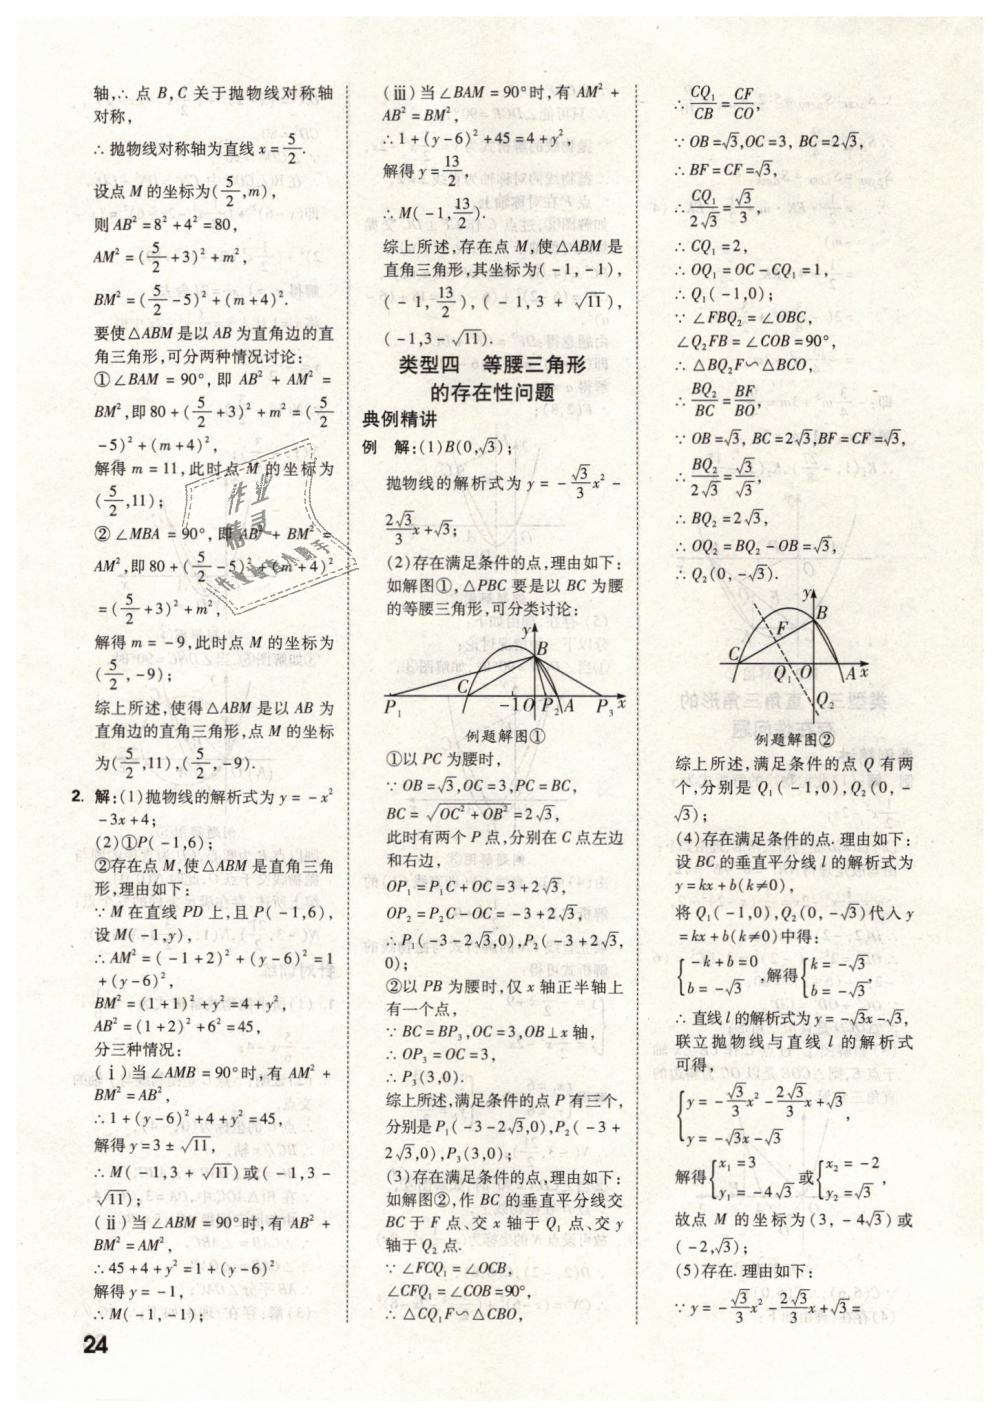 轴,∴点 B,C 关于抛物线对称轴
对称,
∴抛物线对称轴为直线 x=5/2.
设点 M 的坐标为(5/2,m),
则 AB²=8²+4²=80,
AM²=(5/2+3)²+m²,
BM²=(5/2-5)²+(m+4)².
要使△ABM 是以 AB 为直角边的直
角三角形,可分两种情况讨论:
①∠BAM=90°,即 AB²+AM²=
BM²,即80+(5/2+3)²+m²=(5/2
-5)²+(m+4)²,
解得 m=11,此时点 M 的坐标为
(5/2,11);
②∠MBA=90°,即 AB²+BM²=
AM²,即80+(5/2-5)²+(m+4)²
=(5/2+3)²+m²,
解得 m=-9,此时点 M 的坐标为
(5/2,-9);
综上所述,使得△ABM 是以 AB 为
直角边的直角三角形,点 M 的坐标
为(5/2,11),(5/2,-9).
2. 解:(1)抛物线的解析式为 y=-x²
-3x+4;
(2)①P(-1,6);
②存在点 M,使△ABM 是直角三角
形,理由如下:
∵M 在直线 PD 上,且 P(-1,6),
设 M(-1,y),
∴AM²=(-1+2)²+(y-6)²=1
+(y-6)²,
BM²=(1+1)²+y²=4+y²,
AB²=(1+2)²+6²=45,
分三种情况:
(ⅰ)当∠AMB=90°时,有 AM²+
BM²=AB²,
∴1+(y-6)²+4+y²=45,
解得 y=3±√11,
∴M(-1,3+√11)或(-1,3-
√11);
(ⅱ)当∠ABM=90°时,有 AB²+
BM²=AM²,
∴45+4+y²=1+(y-6)²
解得 y=-1,
∴M(-1,-1);
24
(ⅲ)当∠BAM=90°时,有 AM²+
AB²=BM²,
∴1+(y-6)²+45=4+y²,
解得 y=13/2,
∴M(-1,13/2).
综上所述,存在点 M,使△ABM 是
直角三角形,其坐标为(-1,-1),
(-1,13/2),(-1,3+√11),
(-1,3-√11).
类型四 等腰三角形
的存在性问题
典例精讲
例 解:(1)B(0,√3);
抛物线的解析式为 y=-√3/3x²-
2√3/3x+√3;
(2)存在满足条件的点,理由如下:
如解图①,△PBC 要是以 BC 为腰
的等腰三角形,可分类讨论:
y B C P₁ -1 O P₂ A P₃ x
例题解图①
①以 PC 为腰时,
∵OB=√3,OC=3,PC=BC,
BC=√(OC²+OB²)=2√3,
此时有两个 P 点,分别在 C 点左边
和右边,
OP₁=P₁C+OC=3+2√3,
OP₂=P₂C-OC=-3+2√3,
∴P₁(-3-2√3,0),P₂(-3+2√3,
0);
②以 PB 为腰时,仅 x 轴正半轴上
有一个点,
∵BC=BP₃,OC=3,OB⊥x 轴,
∴OP₃=OC=3,
∴P₃(3,0).
综上所述,满足条件的点 P 有三个,
分别是 P₁(-3-2√3,0),P₂(-3+
2√3,0),P₃(3,0);
(3)存在满足条件的点,理由如下:
如解图②,作 BC 的垂直平分线交
BC 于 F 点、交 x 轴于 Q₁ 点、交 y
轴于 Q₂ 点.
∵∠FCQ₁=∠OCB,
∠CFQ₁=∠COB=90°,
∴△CQ₁F∽△CBO,
∴CQ₁/CB=CF/CO,
∵OB=√3,OC=3, BC=2√3,
∴BF=CF=√3,
∴CQ₁/2√3=√3/3,
∴CQ₁=2,
∴OQ₁=OC-CQ₁=1,
∴Q₁(-1,0);
∵∠FBQ₂=∠OBC,
∠Q₂FB=∠COB=90°,
∴△BQ₂F∽△BCO,
∴BQ₂/BC=BF/BO,
∵OB=√3, BC=2√3,BF=CF=√3,
∴BQ₂/2√3=√3/√3,
∴BQ₂=2√3,
∴OQ₂=BQ₂-OB=√3,
∴Q₂(0,-√3).
y B F C Q₁ O A x Q₂
例题解图②
综上所述,满足条件的点 Q 有两
个,分别是 Q₁(-1,0),Q₂(0,-
√3);
(4)存在满足条件的点.理由如下:
设 BC 的垂直平分线 l 的解析式为
y=kx+b(k≠0),
将 Q₁(-1,0),Q₂(0,-√3)代入 y
=kx+b(k≠0)中得:
{-k+b=0 b=-√3,解得{k=-√3 b=-√3,
∴直线 l 的解析式为 y=-√3x-√3,
联立抛物线与直线 l 的解析式
可得,
{y=-√3/3x²-2√3/3x+√3
y=-√3x-√3
解得{x₁=3 y₁=-4√3 或{x₂=-2 y₂=√3,
故点 M 的坐标为(3,-4√3)或
(-2,√3);
(5)存在.理由如下:
∵y=-√3/3x²-2√3/3x+√3=
作业
精灵